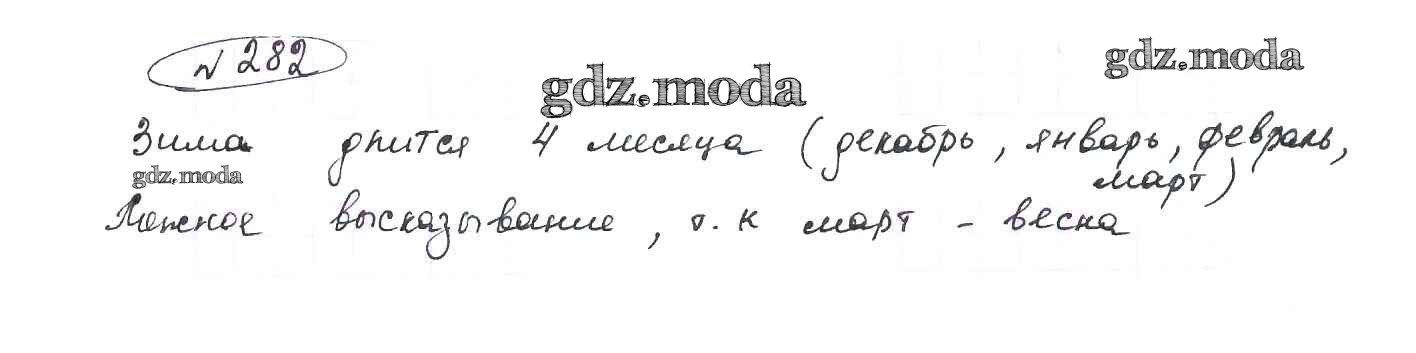 № 282
gdz.moda
gdz.moda
Зима длится 4 месяца (декабрь, январь, февраль,
март)
gdz.moda
Ложное высказывание, т. к март - весна